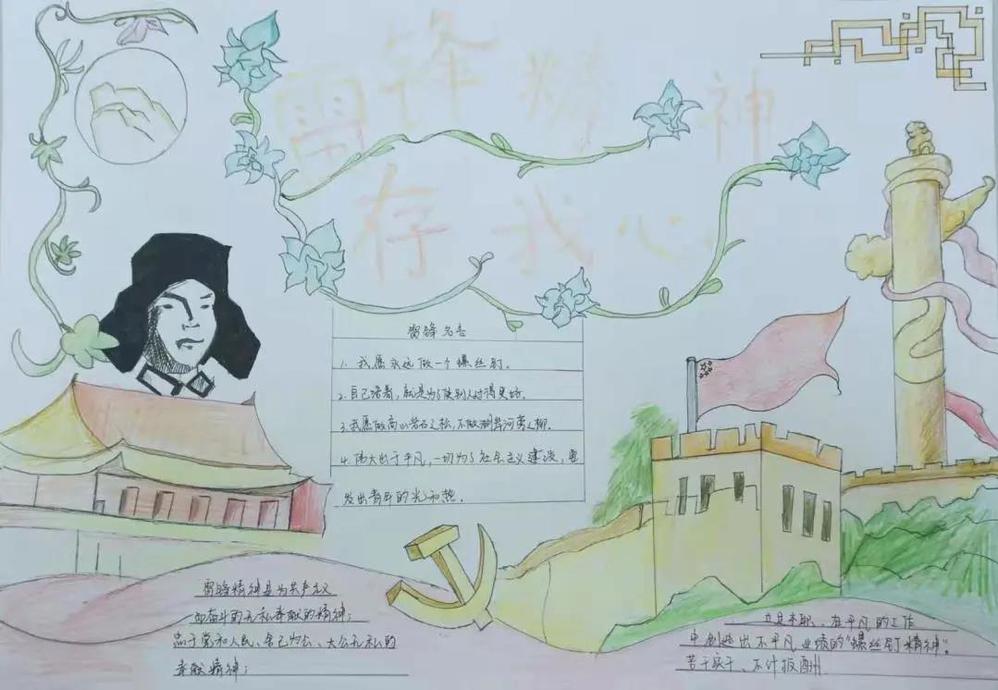 雷锋精神
存我心
雷锋名言
1. 我愿永远做一个螺丝钉。
2. 自己活着，就是为了使别人过得更好。
3. 我愿做高山岩石之松，不做湖岸河旁之柳。
4. 伟大出于平凡，一切为了社会主义建设，要
发出青年的光和热。
雷锋精神是为共产主义
而奋斗的无私奉献的精神；
忠于党和人民、舍己为公、大公无私的
奉献精神；
立足本职、在平凡的工作
中创造出不平凡业绩的"螺丝钉精神"。
苦干实干、不计报酬